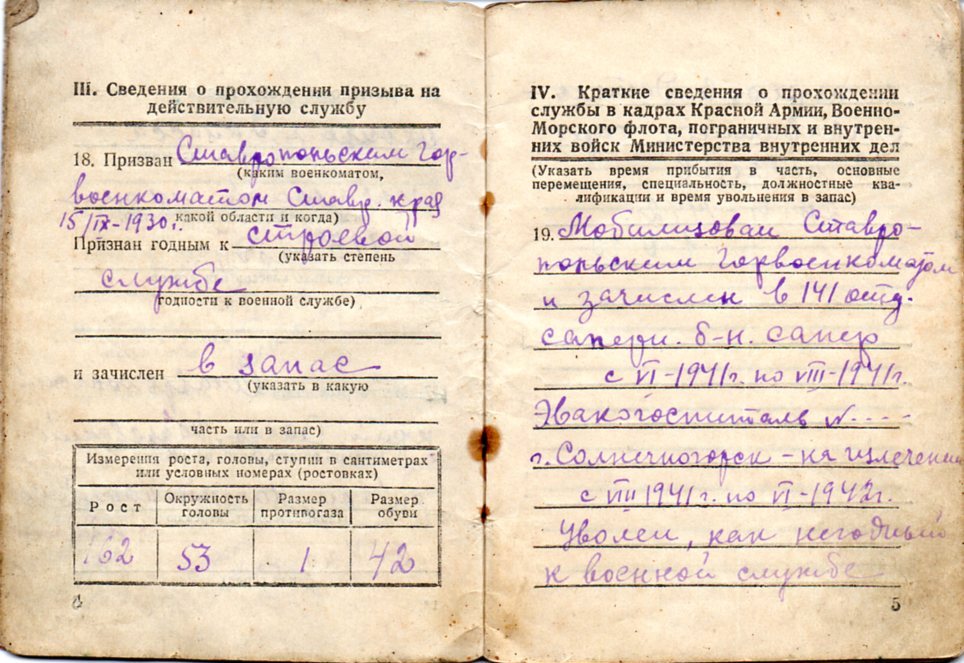 III. Сведения о прохождении призыва на
действительную службу
18. Призван Ставропольским гор-
(каким военкоматом,
военкоматом Ставр. края
15/IX-1930г. какой области и когда)
Признан годным к строевой
(указать степень
службе
годности к военной службе)
и зачислен в запас
(указать в какую
часть или в запас)
Измерения роста, головы, ступни в сантиметрах
или условных номерах (ростовках)
Рост Окружность головы Размер противогаза Размер обуви
162 53 1 42
4
IV. Краткие сведения о прохождении
службы в кадрах Красной Армии, Военно-
Морского флота, пограничных и внутрен-
них войск Министерства внутренних дел
(Указать время прибытия в часть, основные
перемещения, специальность, должностные ква-
лификации и время увольнения в запас)
19. Мобилизован Ставро-
польским горвоенкоматом
и зачислен в 141 отд.
саперн. б-н. сапер
с VI-1941г. по VIII-1941г.
Эвакогоспиталь N ----
г. Солнечногорск - на излечении
с VIII 1941г. по VI-1942г.
Уволен, как негодный
к военной службе
5